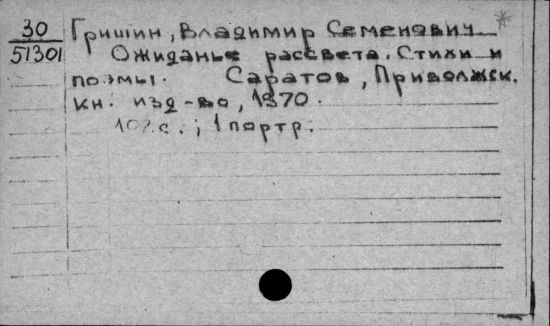 30 Гришин, Владимир Семенович *
51301 Ожиданье рассвета. Стихи и
поэмы. Саратов, Приволжск.
кн. изд-во, 1970.
102 с.; 1 портр.